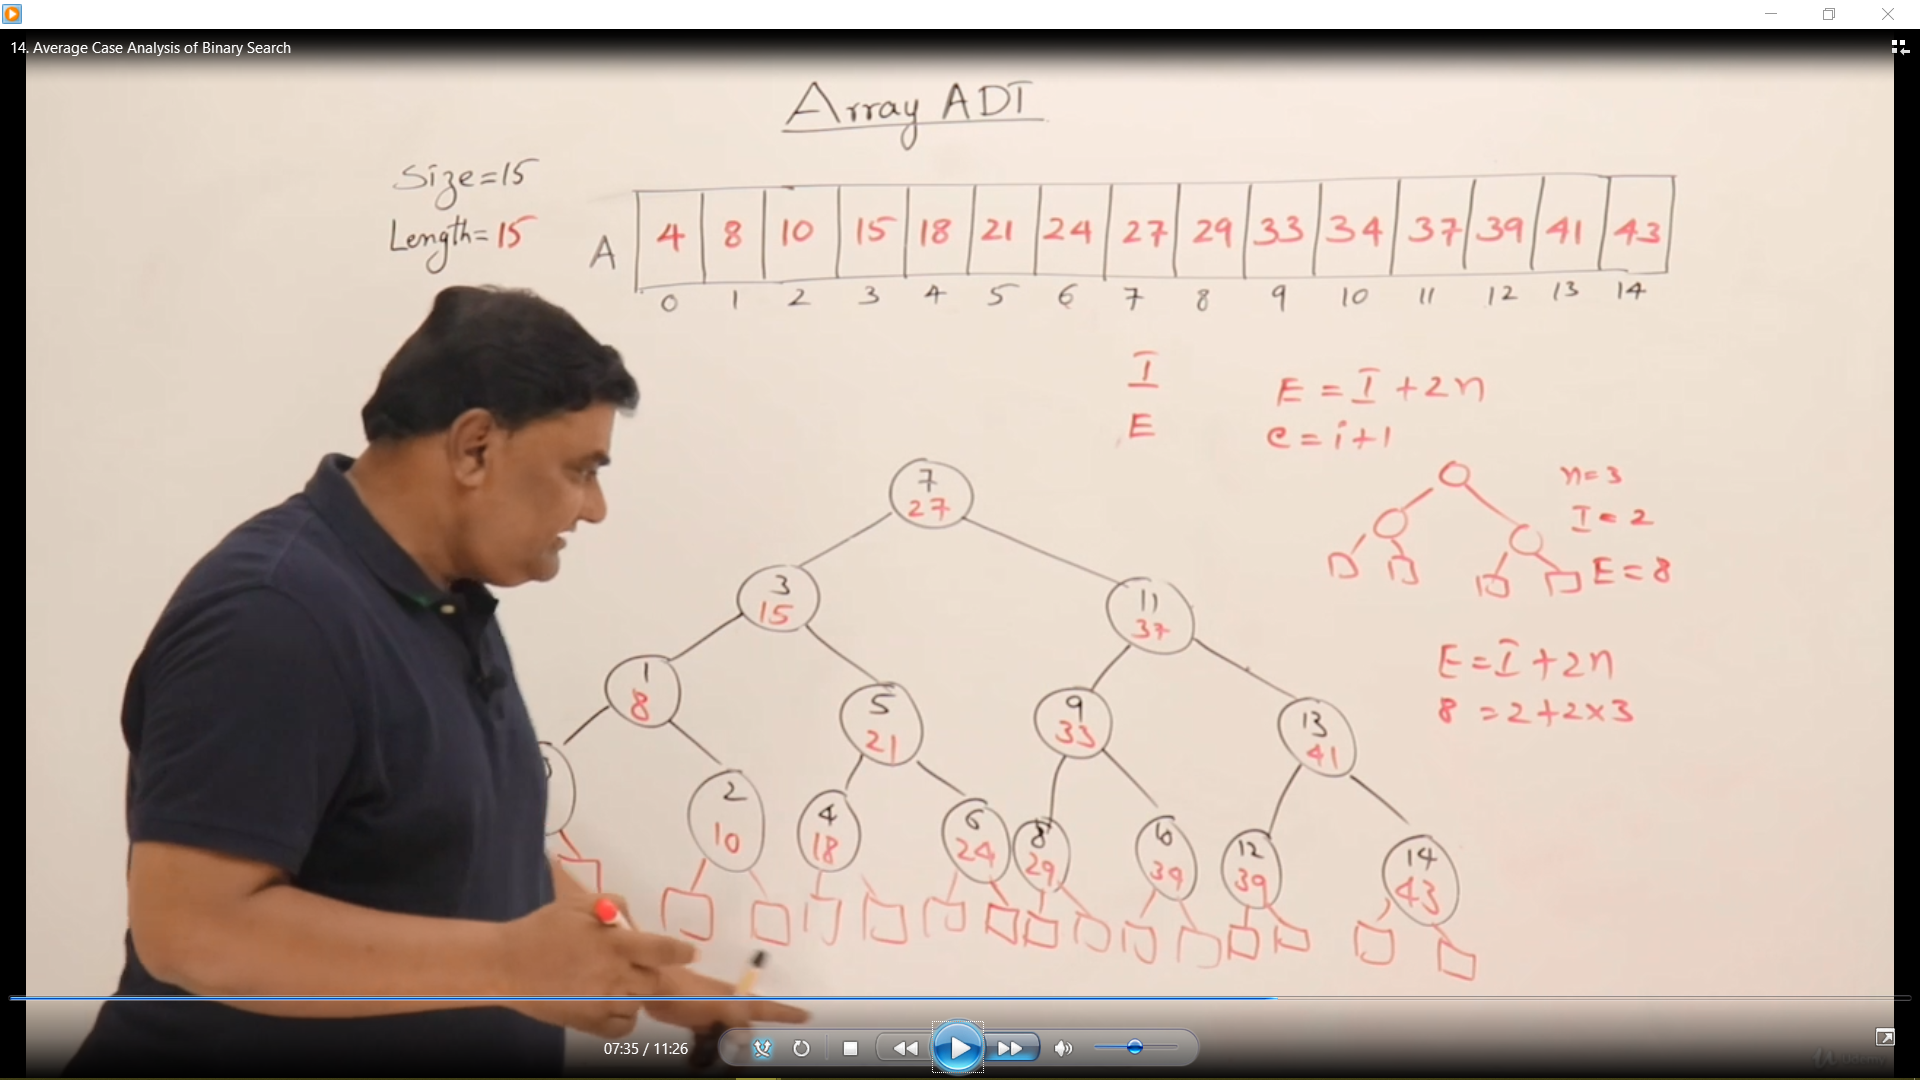 14. Average Case Analysis of Binary Search
Array ADT
Size=15
Length=15
A
4 8 10 15 18 21 24 27 29 33 34 37 39 41 43
0 1 2 3 4 5 6 7 8 9 10 11 12 13 14
I
E
E = I + 2n
e = i+1
n=3
I = 2
E = 8
E = I + 2n
8 = 2+2×3
7
27
3
15
11
37
1
8
5
21
9
33
13
41
2
10
4
18
6
24
8
29
39
12
39
14
43
07:35 / 11:26
Udemy